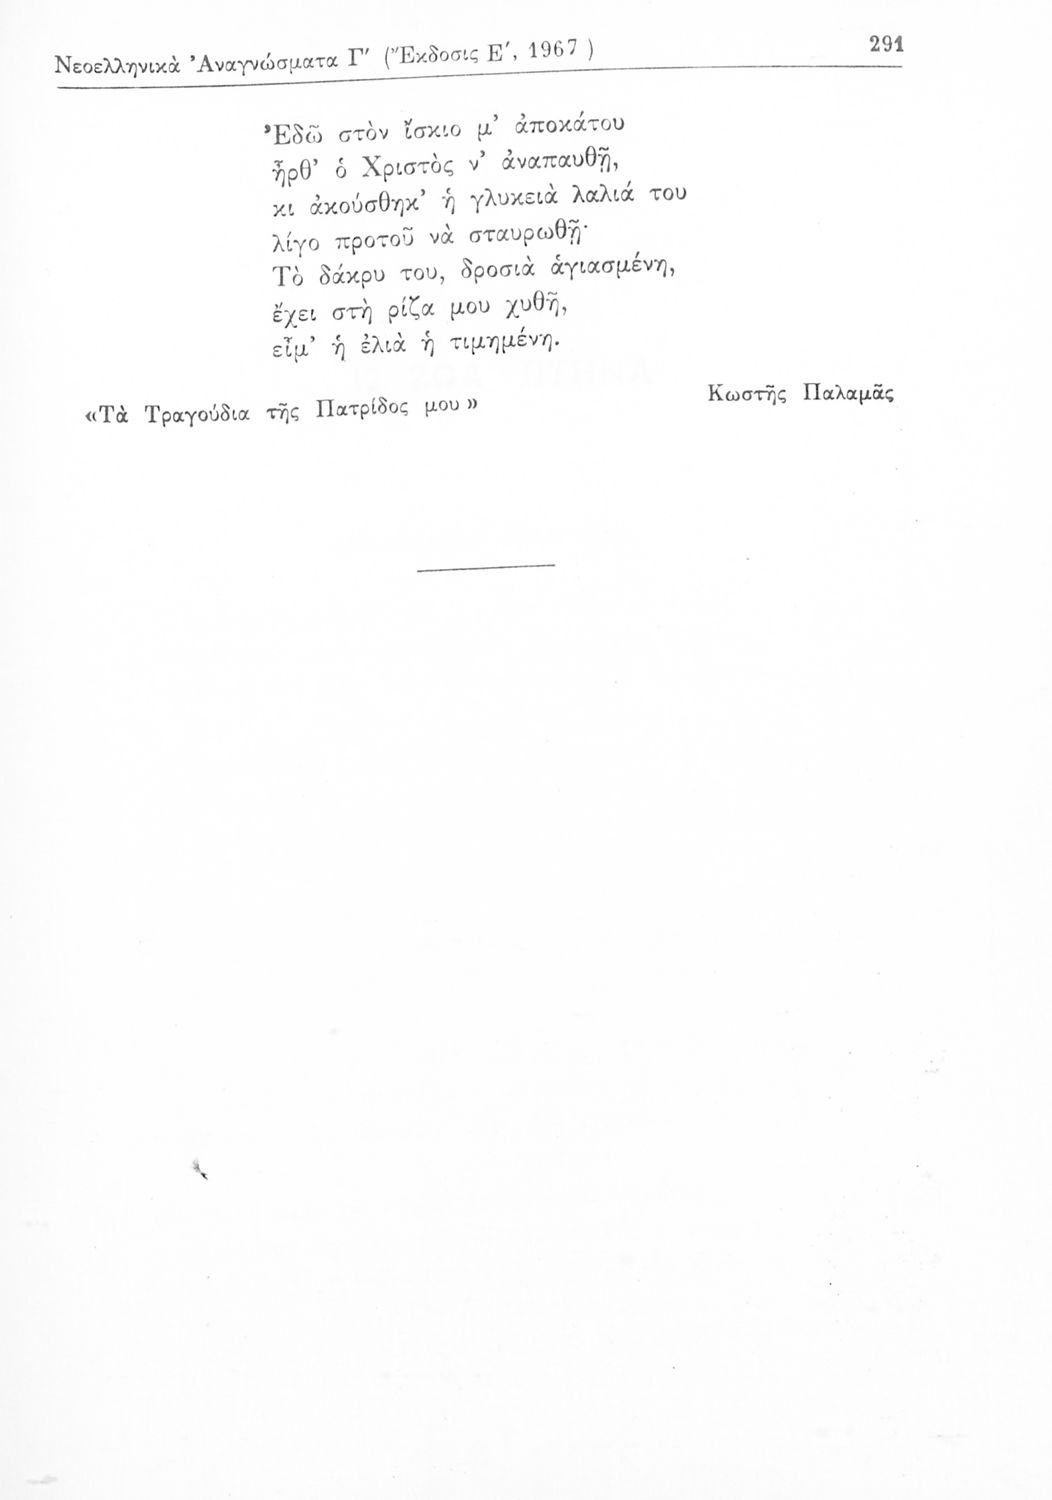 Νεοελληνικὰ Ἀναγνώσματα Γ′ (Ἔκδοσις Ε′, 1967 ) 291
Ἐδῶ στὸν ἴσκιο μ’ ἀποκάτου
ἦρθ’ ὁ Χριστὸς ν’ ἀναπαυθῇ,
κι ἀκούσθηκ’ ἡ γλυκειὰ λαλιά του
λίγο προτοῦ νὰ σταυρωθῇ·
Τὸ δάκρυ του, δροσιὰ ἁγιασμένη,
ἔχει στὴ ρίζα μου χυθῆ,
εἶμ’ ἡ ἐλιὰ ἡ τιμημένη.
«Τὰ Τραγούδια τῆς Πατρίδος μου» Κωστῆς Παλαμᾶς